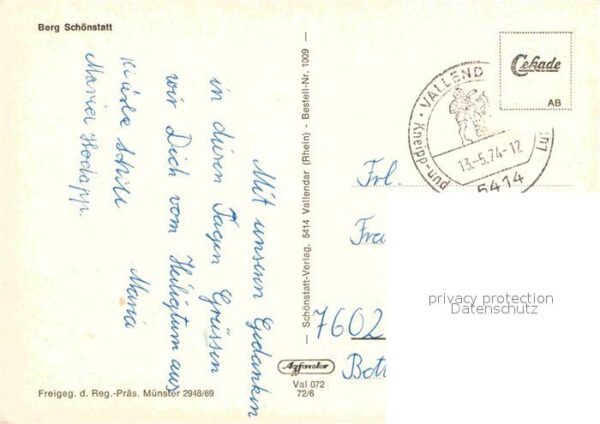 Berg Schönstatt
Mit unsern Gedanken
in diesen Tagen Grüssen
wir Dich vom Heiligtum aus
Maria
Maria Hodapp.
— Schönstatt-Verlag, 5414 Vallendar (Rhein) - Bestell-Nr. 1009 —
Cekade
AB
VALLEND
Kneipp- und
13.-5.74-12
5414
Frl.
Fra
7602
Agfacolor
Val 072
72/6
Freigeg. d. Reg.-Präs. Münster 2948/69
privacy protection
Datenschutz